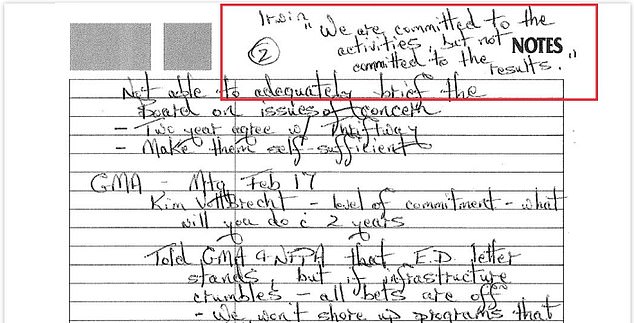 Irwin "We are committed to the
activities, but not
committed to the results."
2
NOTES
Not able to adequately brief the
Board on issues of concern
- Two year agree w/ Thriftway
- Make them self-sufficient
GMA - Mtg Feb 17
Kim - level of commitment - what
will you do c̄ 2 years
Told GMA & that E.D. letter
stands, but if infrastructure
crumbles - all bets are off
- We won't shore up programs that